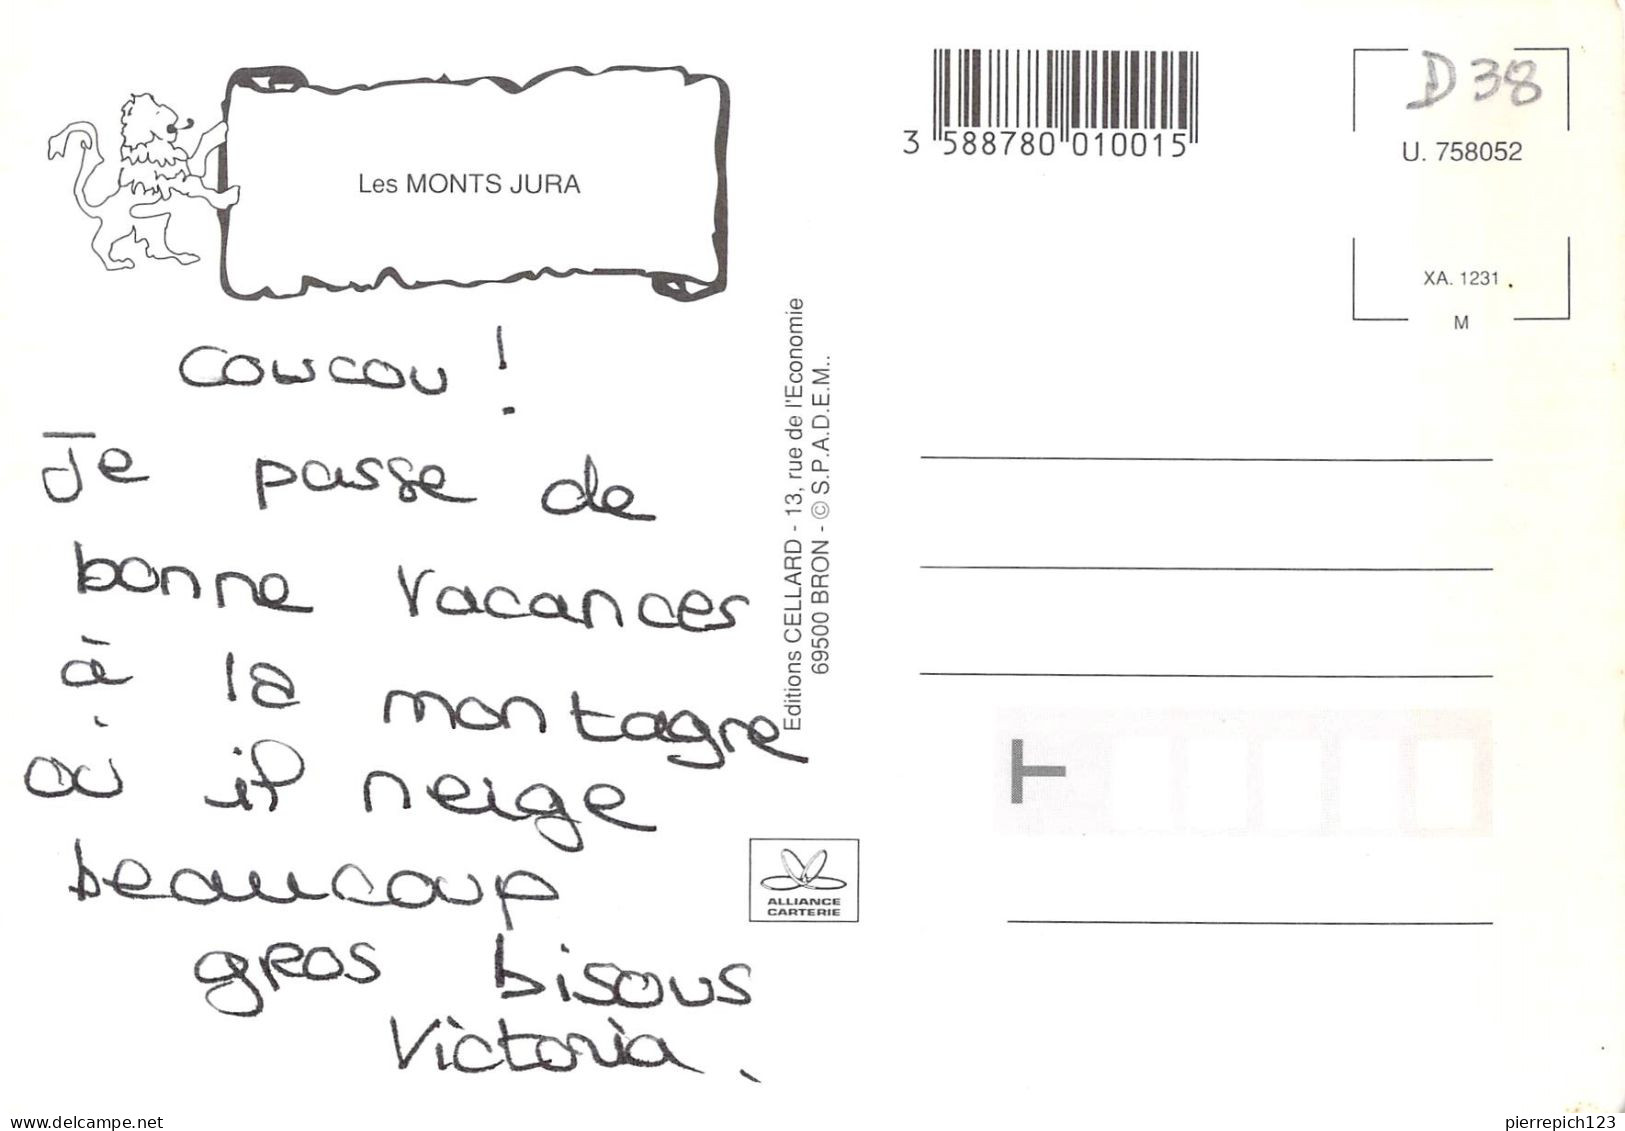 Les MONTS JURA
3 588780 010015
D38
U. 758052
XA. 1231
M
Coucou !
Je passe de
bonne vacances
à la montagne
où il neige
beaucoup
gros bisous
Victoria.
Editions CELLARD - 13, rue de l'Economie
69500 BRON - © S.P.A.D.E.M..
ALLIANCE
CARTERIE
delcampe.net
pierrepich123